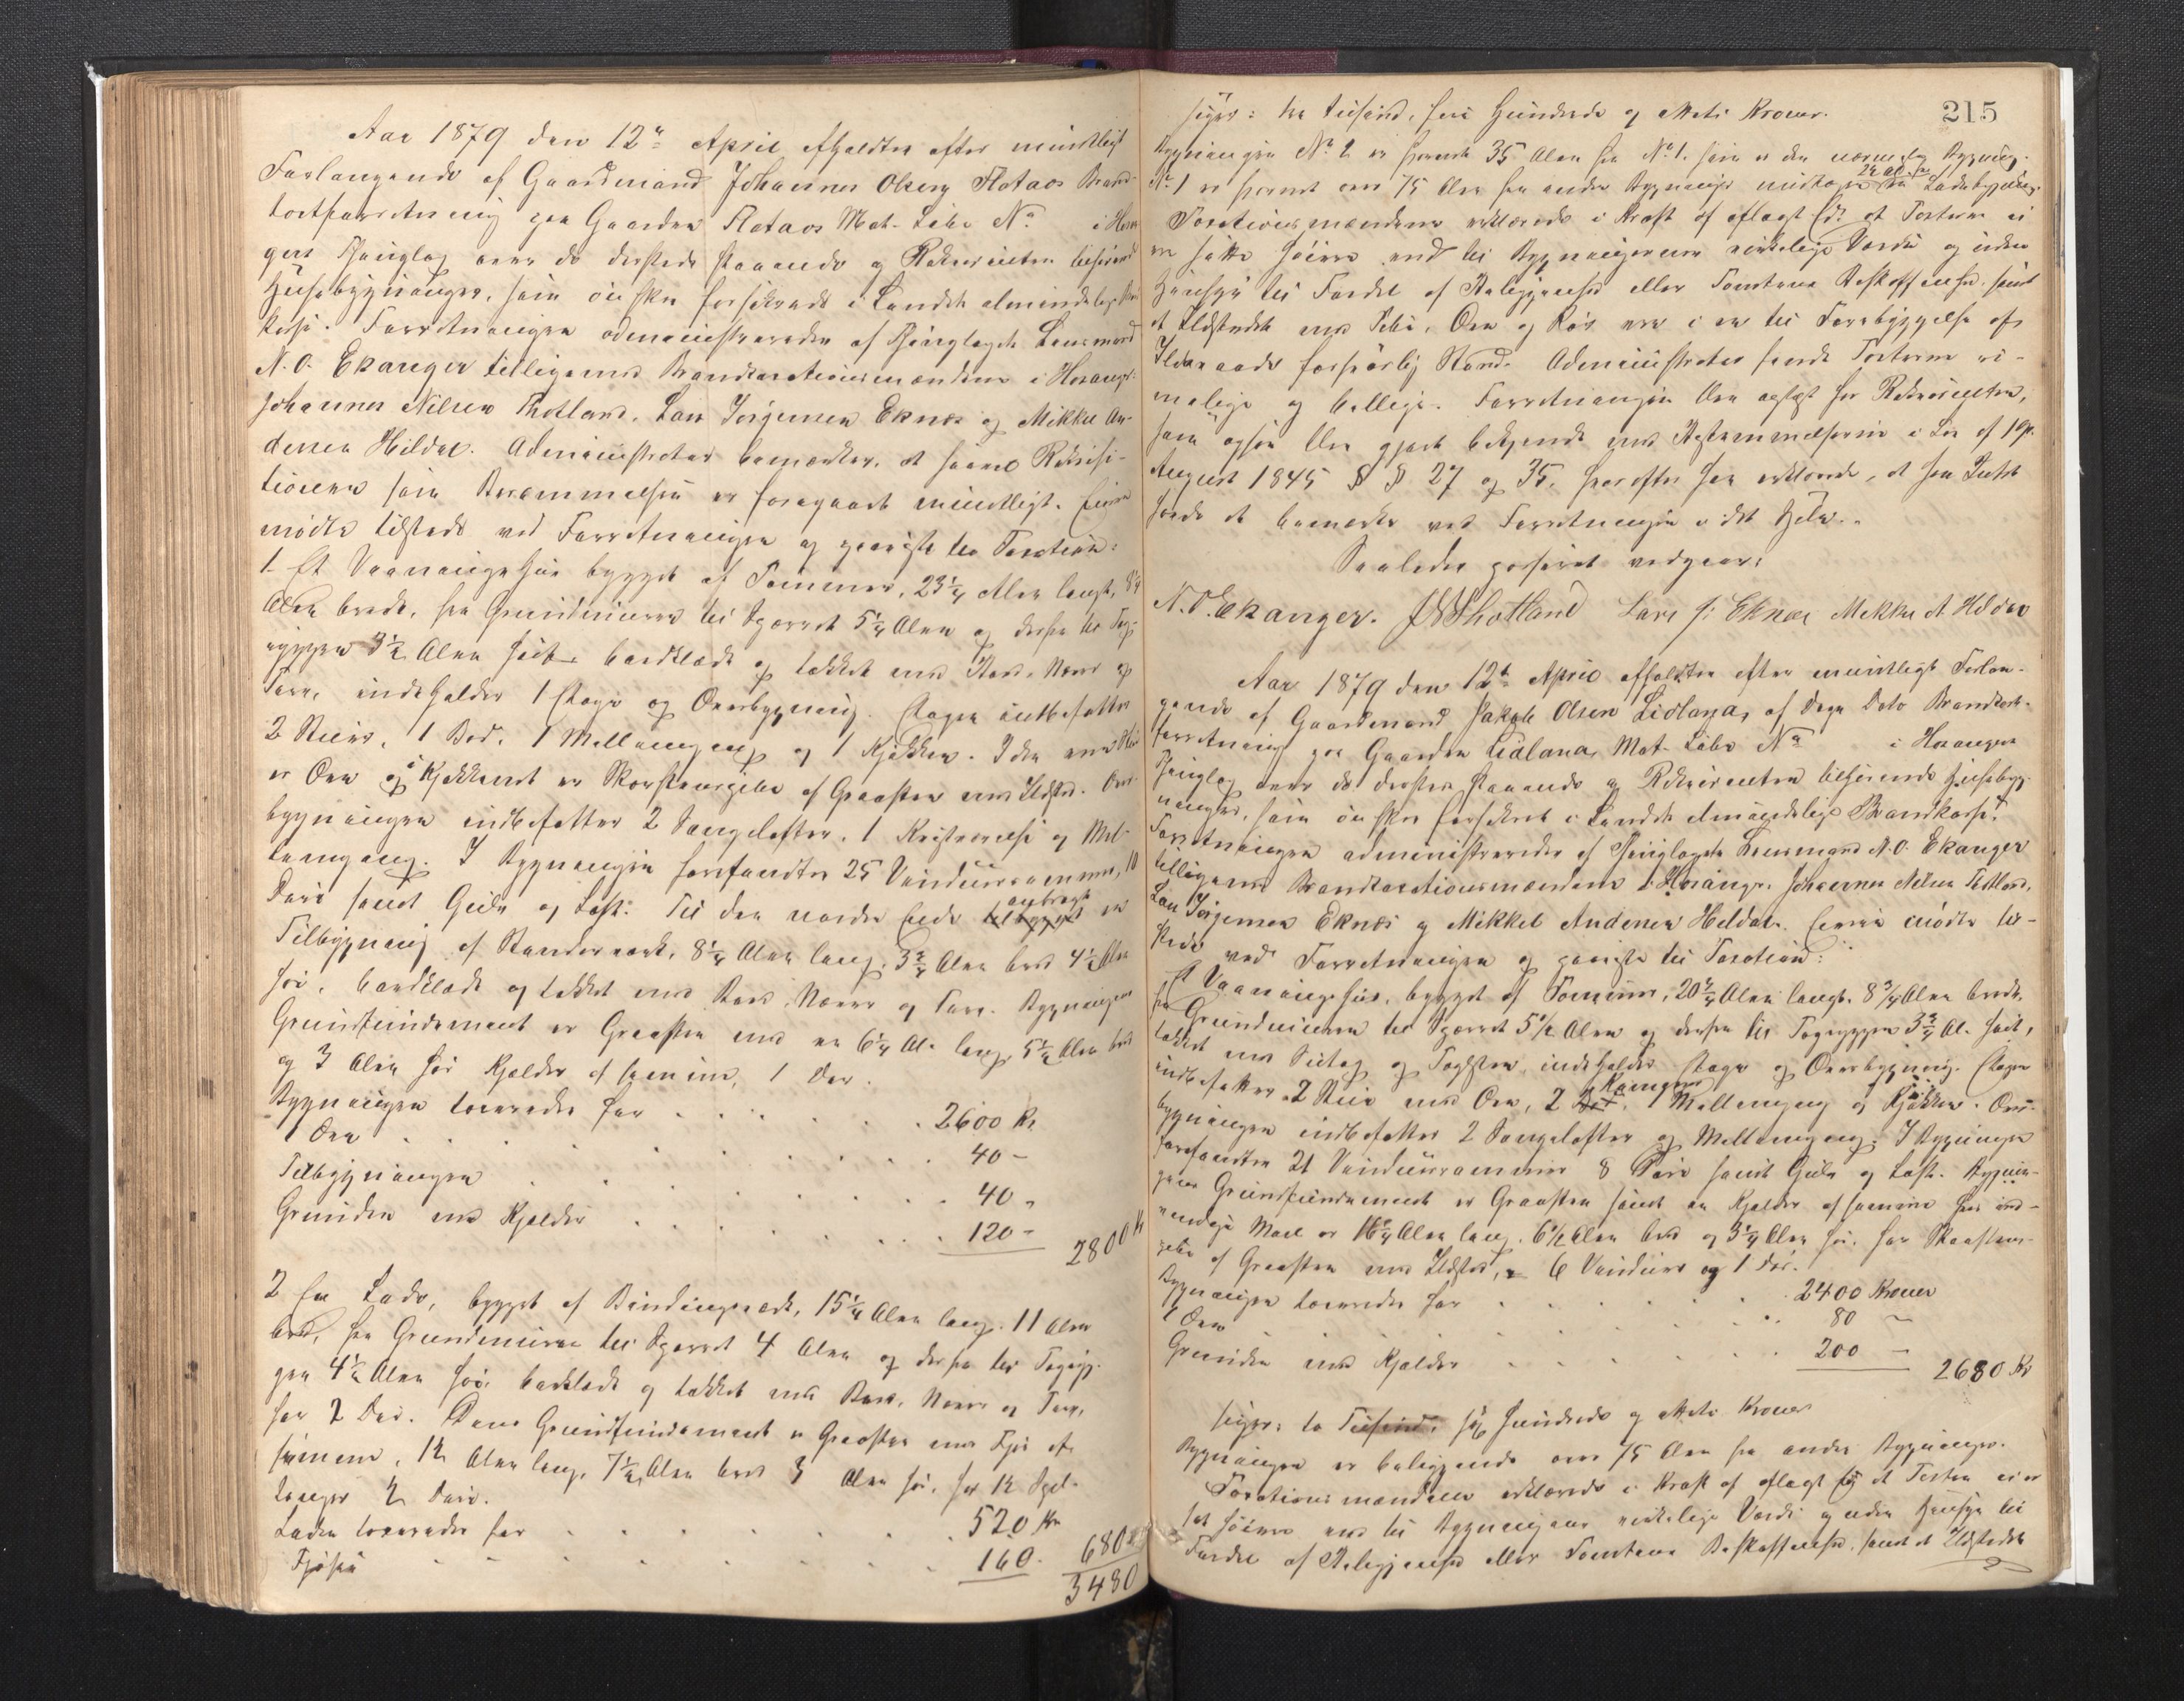 Aar 1879 den 12te April afholdtes efter mundtligt
Forlangende af Gaardmand Johannes Olsen Flataas Brand-
taxtforretning paa Gaarden Flataas Mat. Løbe No i Hosan-
gers Thinglag over de dersteds staaende og Rekvirenten tilhørende
Huusbygninger, som ønskes forsikrede i Landets almindelige Brand-
kasse. Forretningen administreredes af Thinglagets Lensmand
N. O. Ekanger tilligemed Brandtaxationsmændene i Hosanger:
Johannes Nilsen Thotland, Lars Jørgensen Eknæs og Mikkel An-
dersen Hildal. Administrator bemærker, at saavel Rekvisi-
tionen som Berammelsen er foregaaet mundtligt. Eieren
mødte tilstede ved Forretningen og paaviste til Taxation:
1. Et Vaaningshuus bygget af Tømmer, 23 1/4 Alen langt, 8 1/4
Alen bredt, fra Grundmuren til Sperret 5 1/4 Alen og derfra til Tag-
ryggen 3 1/2 Alen høit, bordklædt og tækket med Bord, Næver og
Torv, indeholder 1 Etage og Overbygning. Etagen indbefatter
2 Stuer, 1 Bod, 1 Mellemgang og 1 Kjøkken. I den ene Stue
er Ovn og i Kjøkkenet er Skorstenspibe af Graasten med Ildsted. Over-
bygningen indbefatter 2 Sængelofter, 1 Kristværelse og Mel-
lemgang. I Bygningen forefandtes 25 Vinduesrammer, 10
Døre samt Gulv og Loft. Til den nordre Ende tilbygget anbragt en
Tilbygning af Stavværk, 8 1/4 Alen lang, 3 3/4 Alen bred 4 1/2 Alen
høi, bordklædt og tækket med Bord, Næver og Torv. Bygningens
Grundfundament er Graasten med en 6 1/4 Al. lang, 5 1/2 Alen bred
og 3 Alen høi Kjelder af samme, 1 Dør.
Bygningen taxeredes for . . . . 2600 Kr
1 Ovn . . . . 40 -
Tilbygningen . . . . 40 "
Grunden med Kjelder . . . . 120 - 2800 Kr
2 En Lade, bygget af Bindingsværk, 15 1/4 Alen lang, 11 Alen
bred, fra Grundmuren til Sperret 4 Alen og derfra til Tagryg-
gen 4 1/2 Alen høi, bordklædt og tækket med Bord, Næver og Torv,
har 2 Dør. Dens Grundfundament er Graasten med Fjøs af
samme, 12 Alen lang, 7 1/2 Alen bred 3 Alen høi, har 12 Spil-
tauger 2 Døre.
Laden taxeredes for . . . . 520 Kr
Fjøsen . . . . 160 - 680 "
3480
215
siger: tre tusind, fire Hundrede og otteti Kroner.
Bygningen No 2 er fjernet 35 Alen fra No 1, som er den nærmeste Bygning.
No 1 er fjernet over 75 Alen fra andre Bygninger undtagen fra Ladebygning.
Taxationsmændene erklærede i Kraft af aflagt Ed at Taxterne ei
er satte høiere end til Bygningernes virkelige Værdi og uden
Hensyn til Fordel af Beliggenhed eller Tomtens Beskaffenhed, samt
at Ildstedet med Pibe, Ovn og Rør var i en til Forebyggelse af
Ildsvaade forsvarlig Stand. Administrator fandt Taxterne ri-
melige og billige. Forretningen blev oplæst for Rekvirenten,
som ogsaa blev gjort bekjendt med Bestemmelserne i Lov af 19de
August 1845 §§ 27 og 35, hvorefter han erklærede, at han Intet
havde at bemærke ved Forretningen i det Hele.
Saaledes passeret vedgaar:
N. O. Ekanger. J N Thotland Lars J. Eknæs Mikkel A Hildal
Aar 1879 den 12te April afholdtes efter mundtligt Forlan-
gende af Gaardmand Jakob Olsen Lidlana, af Dags Dato Brandtaxt-
forretning paa Gaarden Lidlana, Mat. Løbe No i Hosangers
Thinglag over de dersteds staaende og Rekvirenten tilhørende Huusbyg-
ninger, som ønskes forsikret i Landets almindelige Brandkasse.
Forretningen administreredes af Thinglagets Lensmand N. O. Ekanger
tilligemed Brandtaxationsmændene i Hosanger, Johannes Nilsen Thotland,
Lars Jørgensen Eknæs og Mikkel Andersen Hildal. Eieren mødte til-
stede ved Forretningen og paaviste til Taxation:
Et Vaaningshuus, bygget af Tømmer, 20 3/4 Alen langt, 8 3/4 Alen bredt,
fra Grundmuren til Sperret 5 1/2 Alen og derfra til Tagryggen 3 3/4 Al. høit,
tækket med Sutag og Tagsten, indeholder Etage og Overbygning. Etagen
indbefatter 2 Stuer med Ovn, 2 Kamers, 1 Mellemgang og Kjøkken. Over-
bygningen indbefatter 2 Sængelofter og Mellemgang. I Bygningen
forefandtes 21 Vinduesrammer 8 Døre samt Gulv og Loft. Bygnin-
gens Grundfundament er Graasten samt en Kjelder af samme hvis ind-
vendige Maal er 16 3/4 Alen lang, 6 1/2 Alen bred og 3 1/4 Alen høi, har Skorstens-
pibe af Graasten med Ildsted, 6 Vinduer og 1 Dør.
Bygningen taxeredes for . . . . 2400 Kroner
2 Ovne . . . . 80 -
Grunden med Kjelder . . . . 200 - 2680 Kr
siger: to Tusind, sex Hundrede og otteti Kroner
Bygningen er beliggende over 75 Alen fra andre Bygninger.
Taxationsmændene erklærede i Kraft af aflagt Ed at Taxten ei er
sat høiere end til Bygningens virkelige Værdi og uden Hensyn til
Fordel af Beliggenhed eller Tomtens Beskaffenhed, samt at Ildstedet